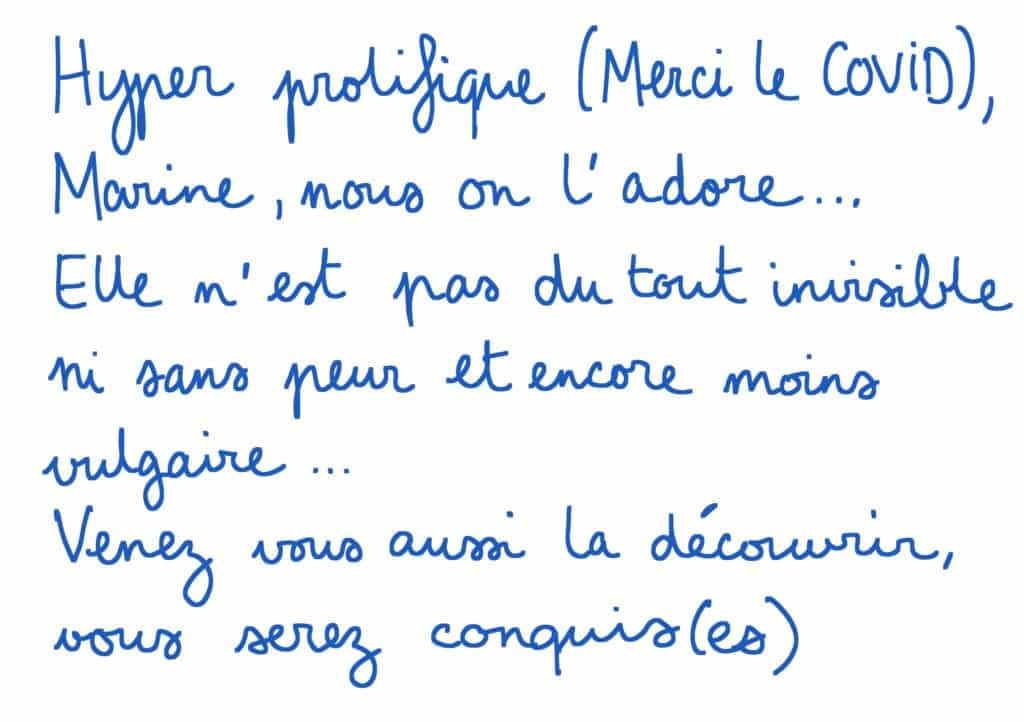 Hyper prolifique (Merci le COVID),
Marine, nous on l'adore...
Elle n'est pas du tout invisible
ni sans peur et encore moins
vulgaire ...
Venez vous aussi la découvrir,
vous serez conquis(es)